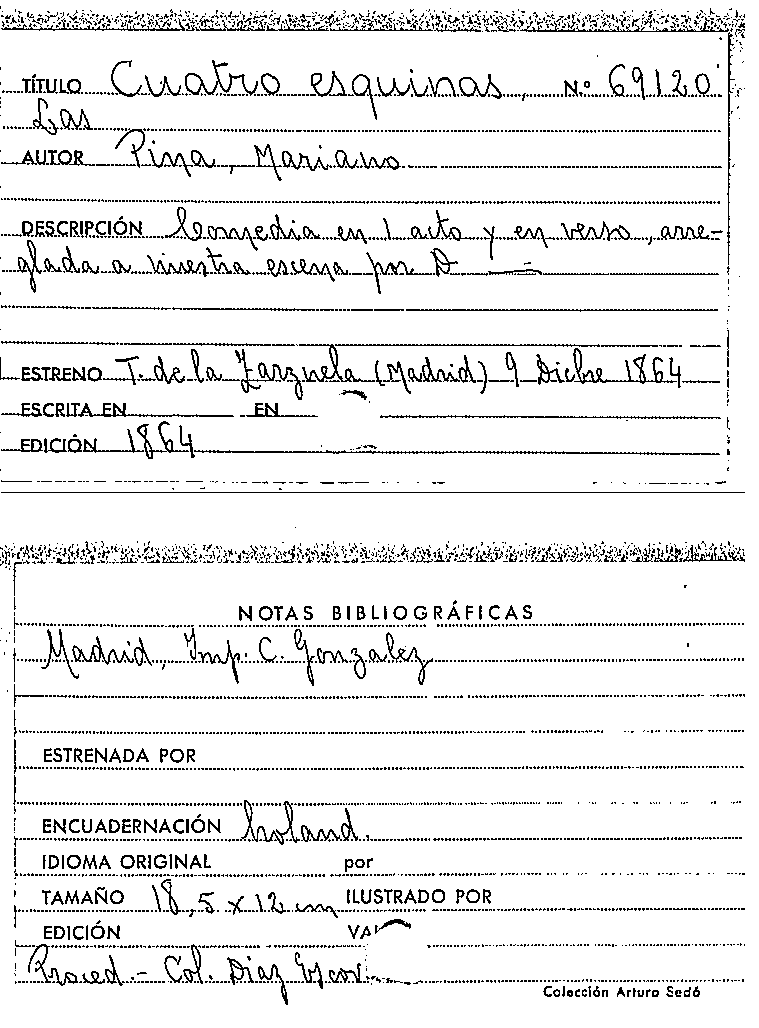 TÍTULO Cuatro esquinas, N.º 69120
Las
AUTOR Pina, Mariano
DESCRIPCIÓN Comedia en 1 acto y en verso, arre-
glada a nuestra escena por D —
ESTRENO T. de la Zarzuela (Madrid) 9 Dicbre 1864
ESCRITA EN EN
EDICIÓN 1864
NOTAS BIBLIOGRÁFICAS
Madrid, Imp. C. Gonzalez
ESTRENADA POR
ENCUADERNACIÓN holand.
IDIOMA ORIGINAL por
TAMAÑO 18,5 x 12 cm ILUSTRADO POR
EDICIÓN VAL
Proced.- Col. Diaz Escov.
Colección Arturo Sedó